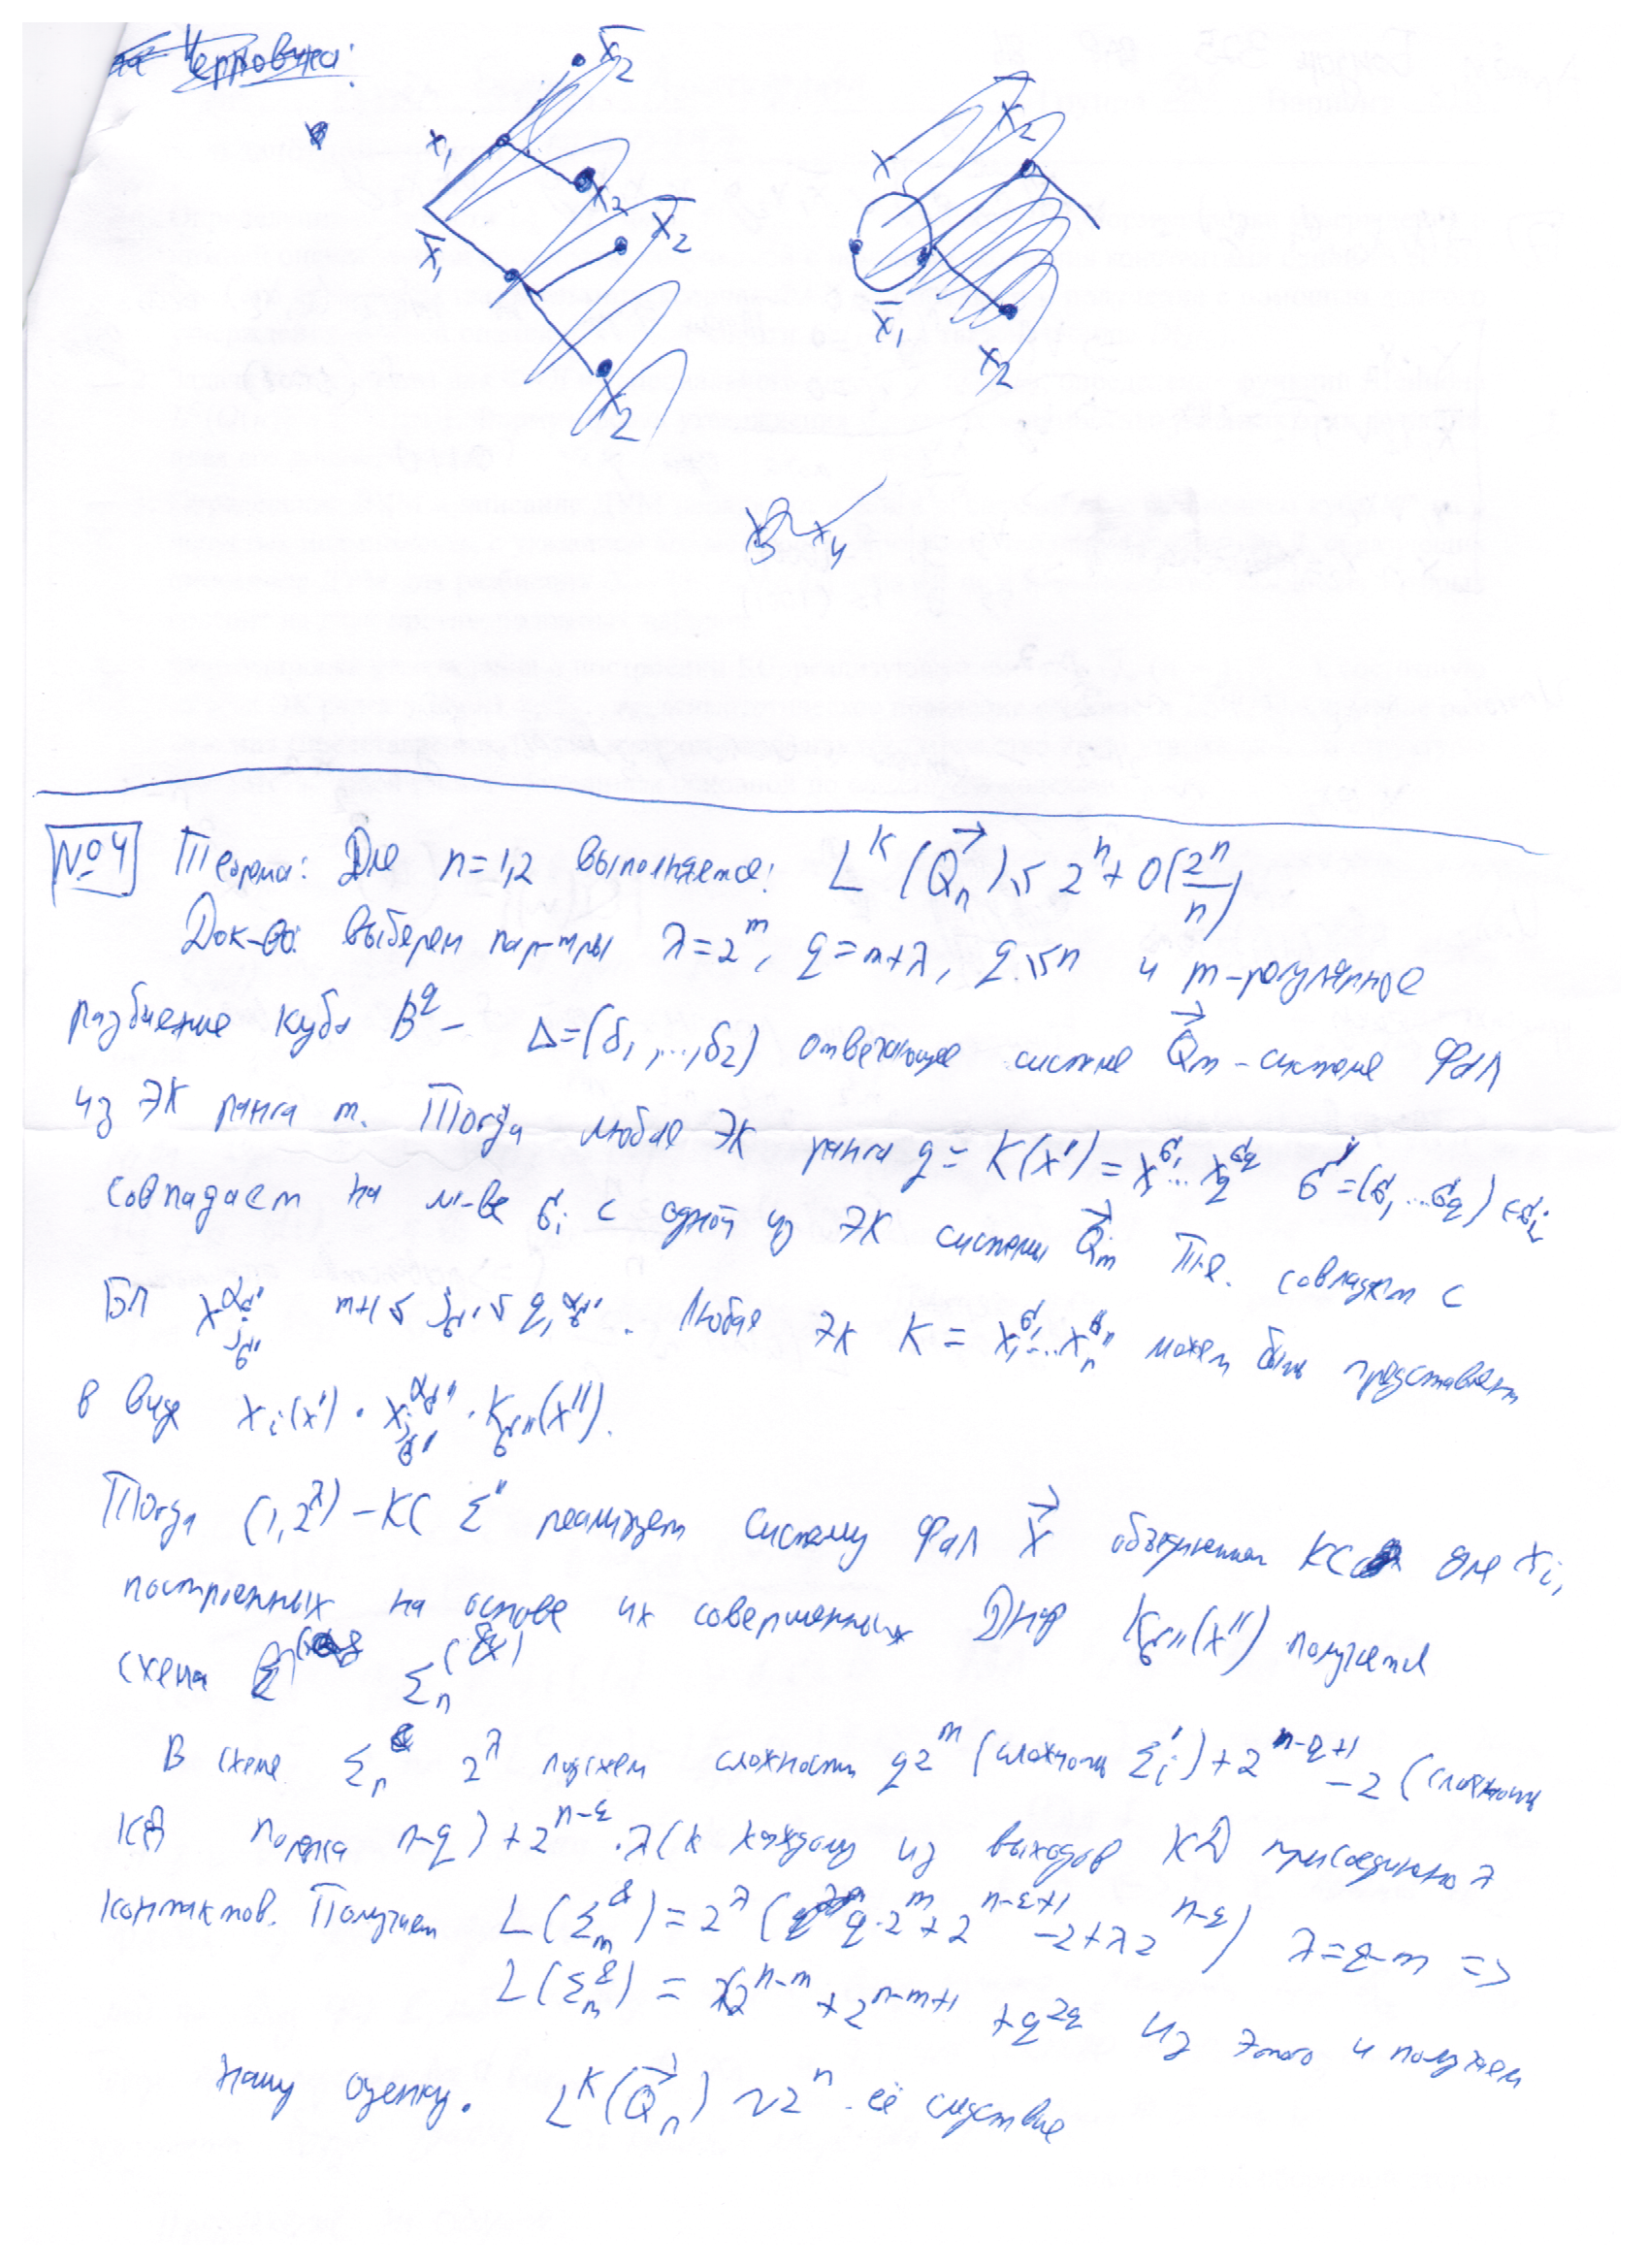 Черновик:
x̄₂
x₁
x₂
x̄₂
x̄₁
x₂
x
x̄₂
x̄₁
x₂
x₄
№4 Теорема: Для n=1,2 выполняется: L^K(Q⃗_n) ≤ 2^n + O(2^n/n)
Док-во: выберем пар-тры λ=2^m, q=m+λ, q≤n и m-регулярное
разбиение куба B^q - Δ=(δ₁,...,δ₂) отвечающее системе Q⃗_m - системе ФАЛ
из ЭК ранга m. Тогда любая ЭК ранга q = K(x') = x₁^{σ₁}...x_q^{σ_q} σ'=(σ₁...σ_q)∈δ_i
совпадает на м-ве δ_i с одной из ЭК системы Q⃗_m т.е. совпадет с
БП x_{j_σ''}^{α_σ''} m+1≤j_σ''≤q, α_σ''. Любая ЭК K = x₁^{σ₁}...x_n^{σ_n} может быть представлена
в виде χ_i(x') · x_{j_σ''}^{α_σ''} · K_σ''(x'').
Тогда (1,2^λ)-КС Σ' реализует систему ФАЛ χ⃗ объединения КС для χ_i,
построенных на основе их совершенных ДНФ K_σ''(x'') получается
схема Σ_n^(&)
В схеме Σ_n^& 2^λ подсхем сложности q2^m (сложность Σ'_i) + 2^{n-q+1} - 2 (сложность
КД порядка n-q) + 2^{n-q}·λ (к каждому из выходов КД присоединено λ
контактов. Получаем L(Σ_m^&) = 2^λ (q·2^m + 2^{n-q+1} - 2 + λ2^{n-q}) λ=q-m =>
L(Σ_m^&) = λ2^{n-m} + 2^{n-m+1} + q^{2q} из этого и получаем
нашу оценку. L^K(Q⃗_n) ~ 2^n - её следствие